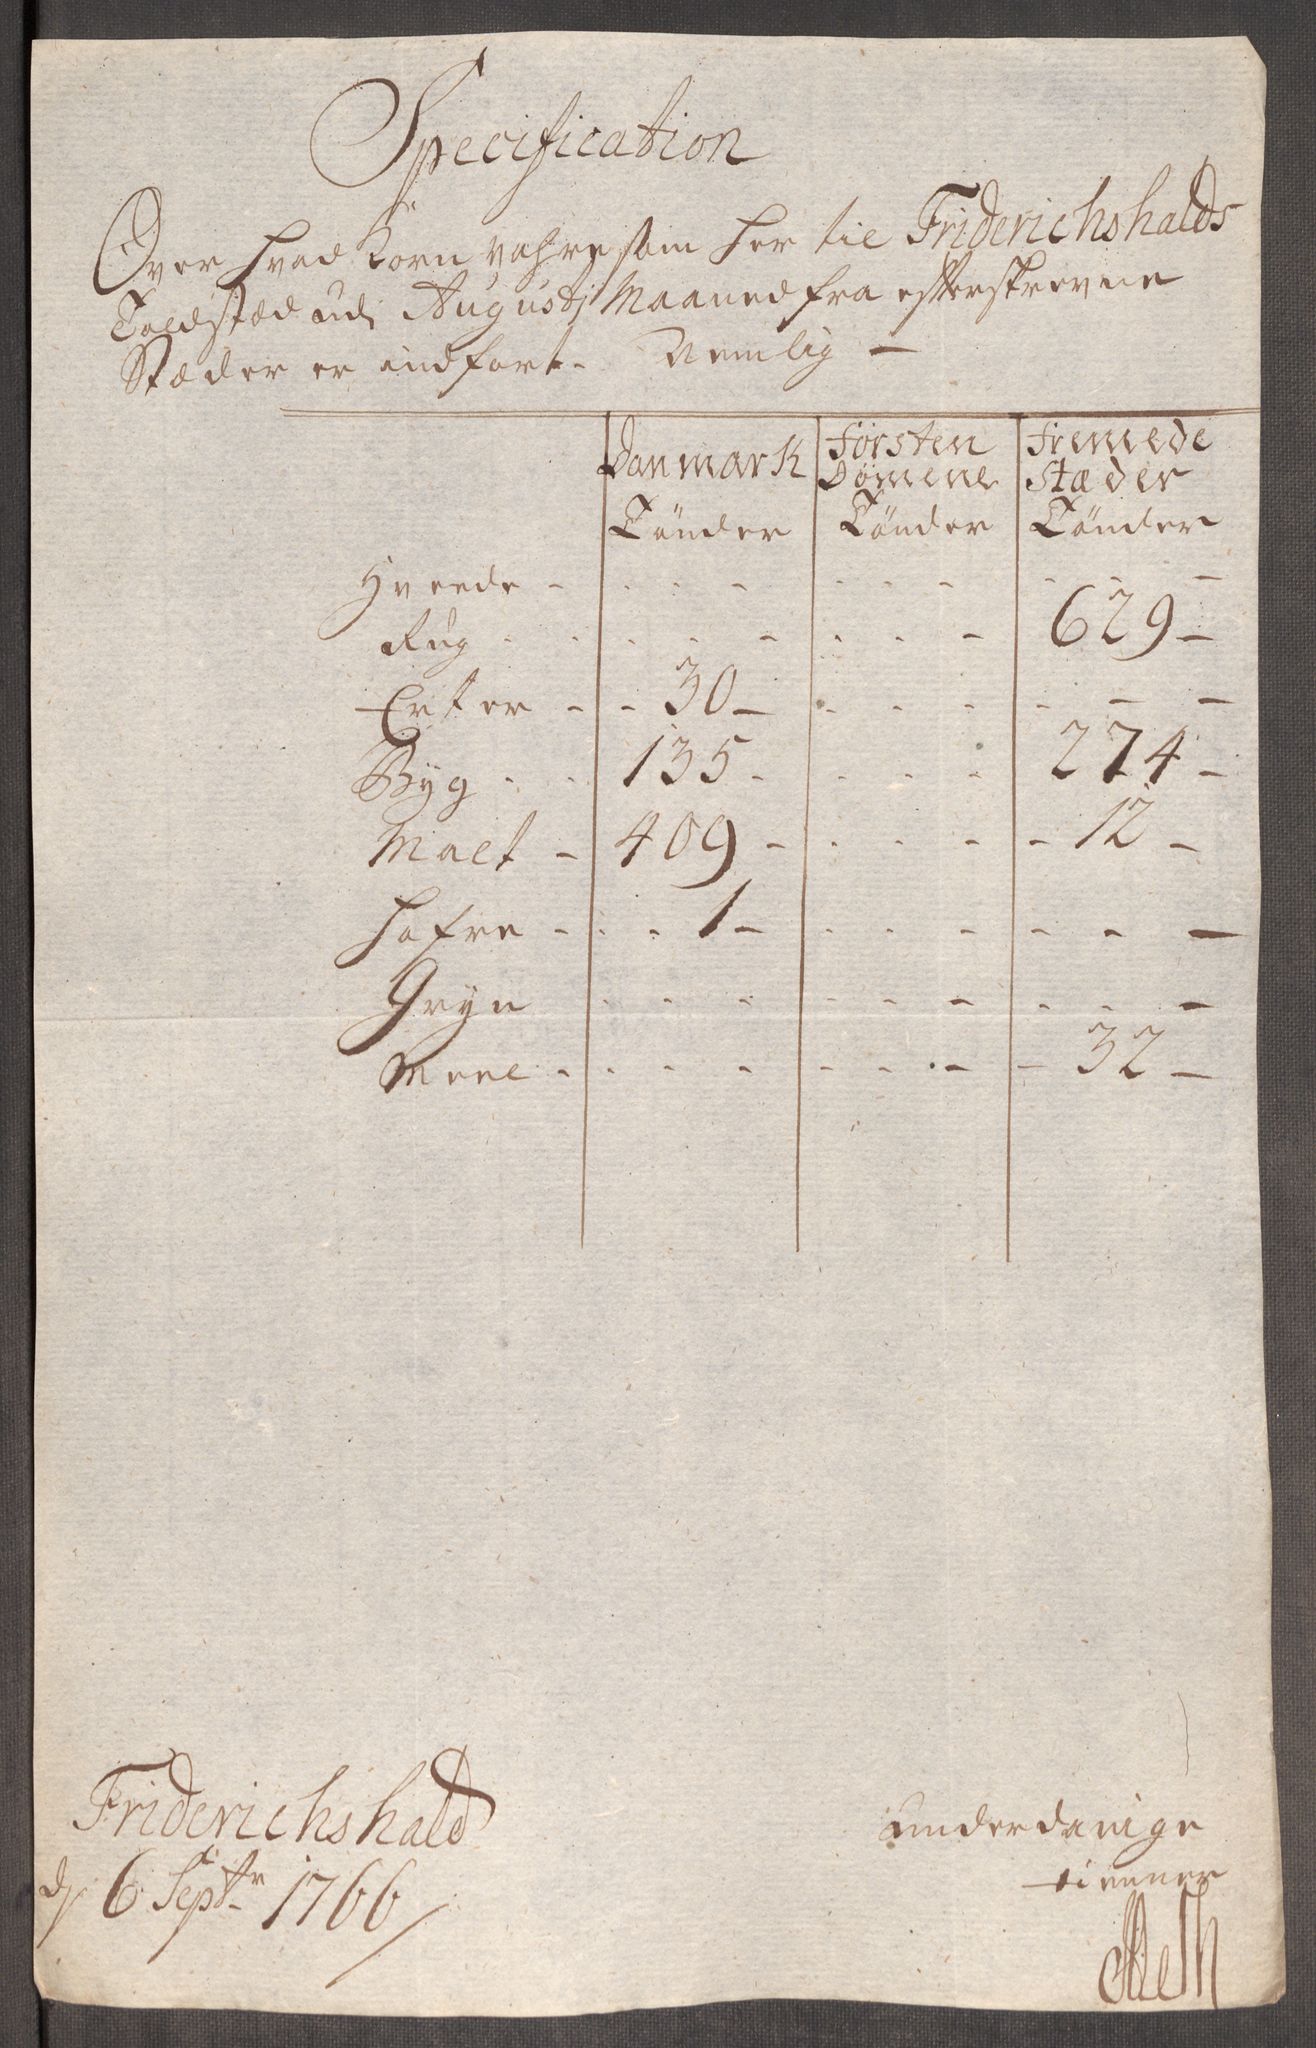 Specification
Over hvad Korn vahre som her til Friderichshalds
Toldstæd udi Augustj Maaned fra efterskrevne
Stæder er indført. Nemlig —
Danmark Førsten Fremede
Dömene Stæder
Tönder Tönder Tönder
Hvede - . . . - . . - . . -
Rug . . . . - . . - 629 -
Erter - - 30 - . . - - - -
Byg . . 135 - . . - 274 -
Malt - 409 - . . - - 12 -
Hafre - . . 1 - . . - - - -
Gryn . . - - - - . . -
Meel - . . - - - - - 32 -
Friderichshald
d 6 Septr 1766
underdanige
tienner